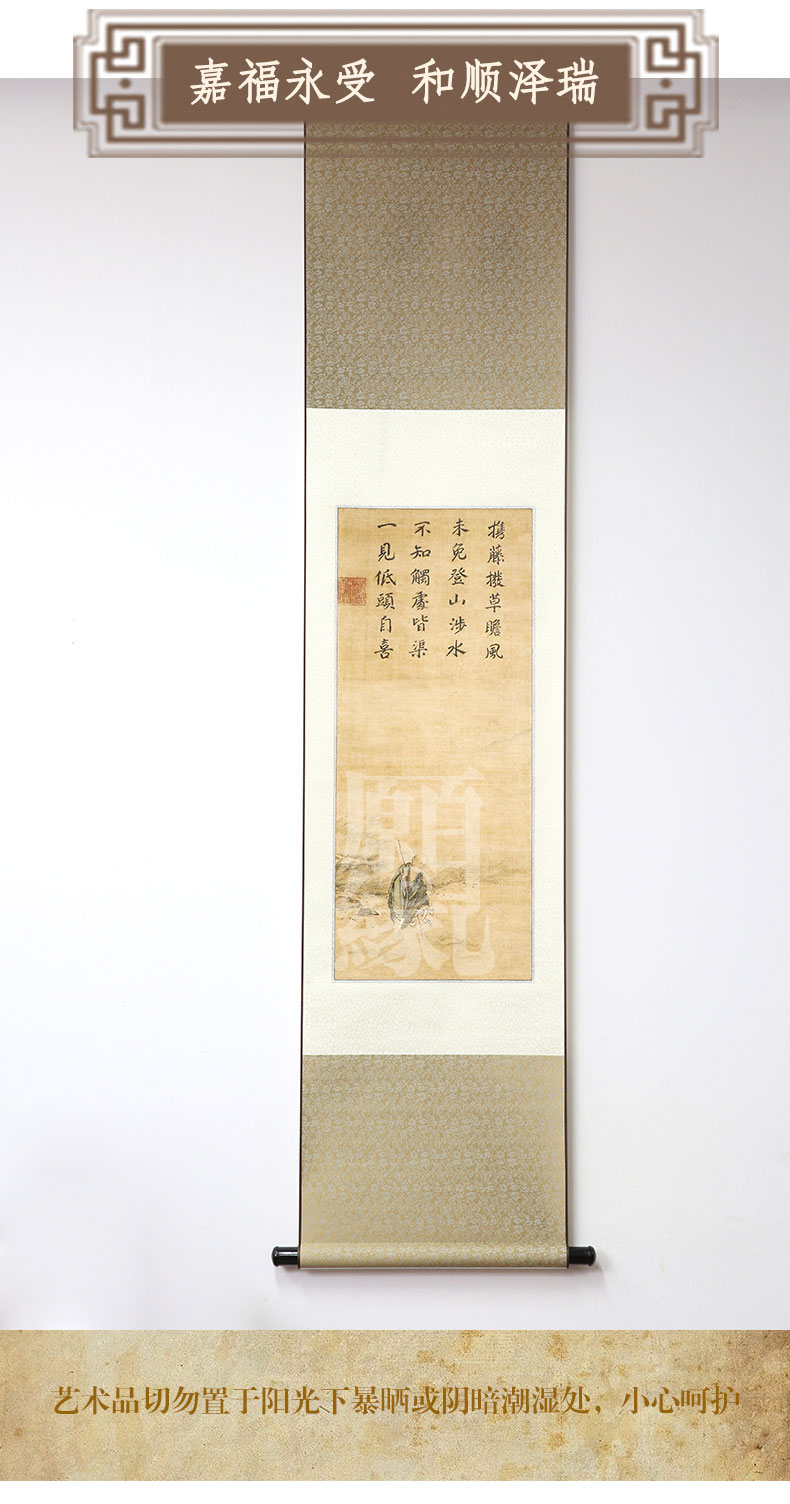 嘉福永受 和顺泽瑞
携藤撥草瞻風
未免登山涉水
不知觸處皆渠
一見低頭自喜
願
緣
艺术品切勿置于阳光下暴晒或阴暗潮湿处，小心呵护